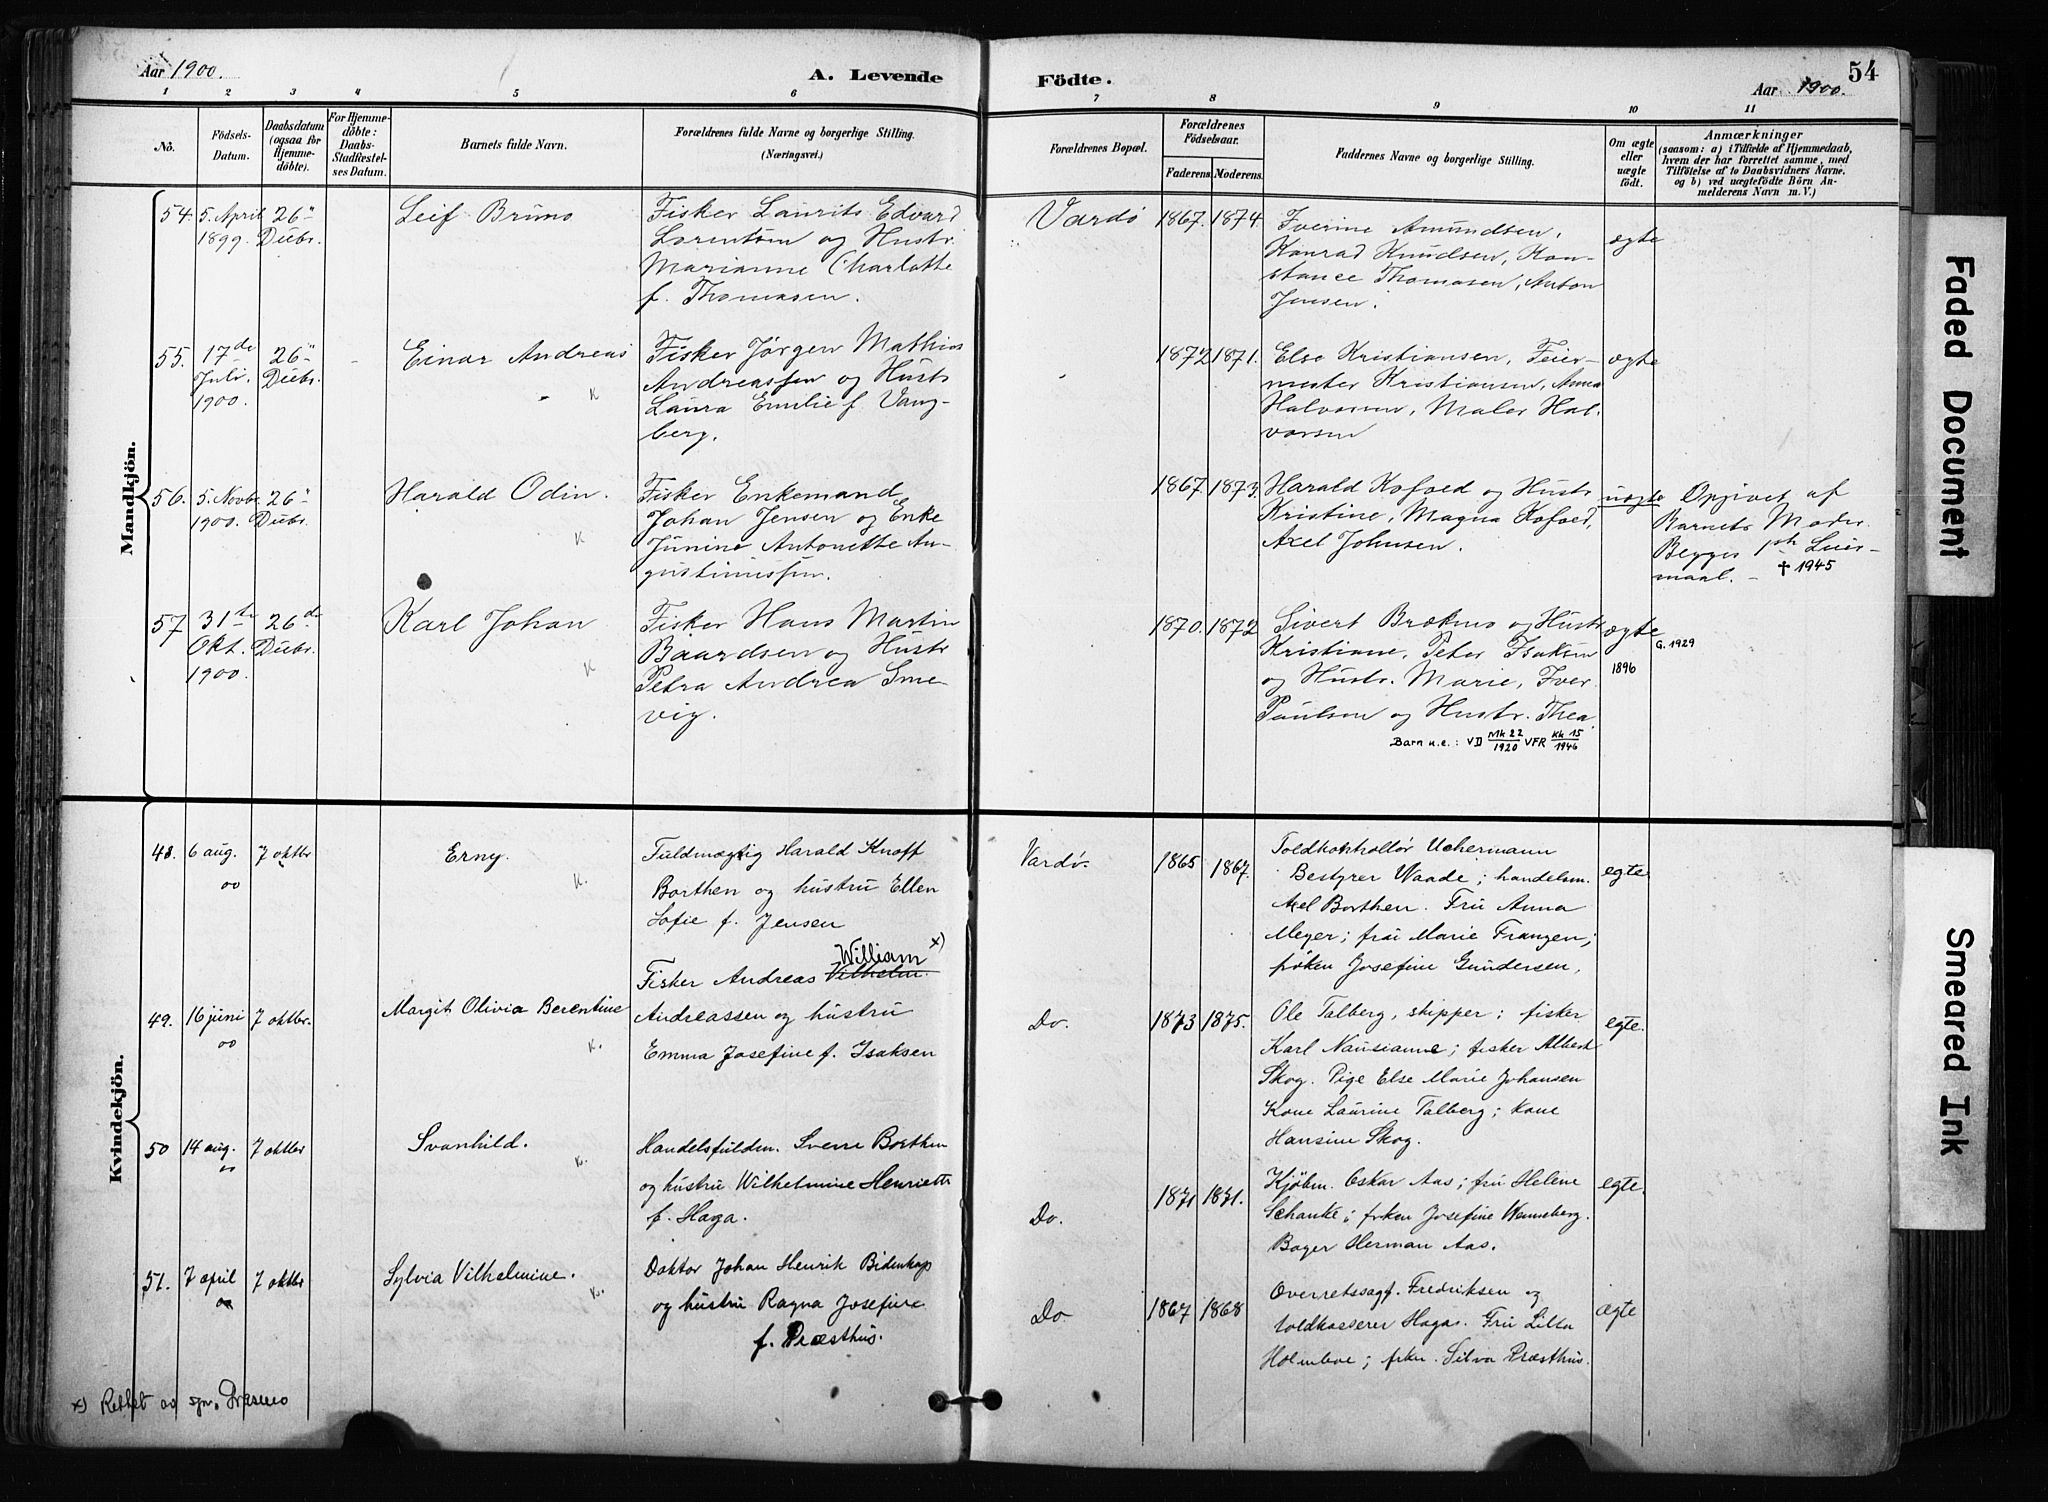 Aar 1900.
A. Levende
Födte.
54
Aar 1900.
1 2 3 4 5 6 7 8 9 10 11
Nô.
Födsels-
Datum.
Daabsdatum
(ogsaa for
Hjemme-
döbte).
For Hjemme-
döbte:
Daabs-
Stadfæstel-
ses Datum.
Barnets fulde Navn.
Forældrenes fulde Navne og borgerlige Stilling.
(Næringsvei.)
Forældrenes Bopæl.
Forældrenes
Födselsaar.
Faderens. Moderens.
Faddernes Navne og borgerlige Stilling.
Om ægte
eller
uægte
födt.
Anmærkninger
(saasom: a) i Tilfælde af Hjemmedaab,
hvem der har forrettet samme, med
Tilföielse af to Daabsvidners Navne.
og b) ved uægtefödte Börn An-
melderens Navn m. V.)
Mandkjön.
54. 5. April
1899.
26"
Dcbr.
Leif Bruno
Fisker Laurits Edvard
Lorentsen og Hustr.
Marianne Charlotte
f. Thomasen.
Vardö
1867. 1874.
Iverine Amundsen,
Konrad Knudsen, Kon-
stance Thomasen, Anton
Jensen.
ægte
55. 17de
Juli.
1900.
26"
Dcbr.
Einar Andreas
K
Fisker Jørgen Mathias
Andreassen og Hustr
Laura Emilie f. Vang-
berg.
1872 1871.
Else Kristiansen, Feier-
mester Kristiansen, Anna
Halvorsen, Maler Hal-
vorsen
ægte
56. 5. Novbr.
1900.
26"
Dcbr.
Harald Odin.
K
Fisker Enkemand
Johan Jensen og Enke
Junine Antonette Au-
gustinussen.
1867. 1873.
Harald Kofoed og Hustr
Kristine, Magna Kofoed,
Axel Johnsen.
uægte
Opgivet af
Barnets Moder.
Begges 1ste Leier-
maal. -
† 1945
57 31te
Okt.
1900.
26de
Dcbr.
Karl Johan
K
Fisker Hans Martin
Baardsen og Hustr
Petra Andrea Sme-
vig.
1870. 1872
Sivert Brækmo og Hustr
Kristiane, Peter Isaksen
og Hustr. Marie, Iver
Paulsen og Hustr. Thea
ægte
1896
G. 1929
Barn u.e.: VD Mk 22 / 1920 VFR Kk 15 / 1946
Kvindekjön.
48. 6 aug.
00
7 oktbr
Erny.
K.
Fuldmægtig Harald Knoff
Borthen og hustru Ellen
Sofie f. Jensen
Vardö.
1865 1867.
Toldkontrollør Uchermann
Bestyrer Waade; handelsm.
Axel Borthen. Fru Anna
Meyer; fru Marie Franzen;
frøken Josefine Gundersen,
egte
49. 16 juni
00
7 oktbr.
Margit Olivia Berentine
K.
William x)
Fisker Andreas Vilhelm
Andreassen og hustru
Emma Josefine f. Isaksen
Do.
1873 1875.
Ole Talberg, skipper; fisker
Karl Nausianne; fisker Albert
Skog. Pige Else Marie Johansen
Kone Laurine Talberg; kone
Hansine Skog.
egte.
50 14 aug.
00
7 oktbr
Svanhild.
K.
Handelsfuldm. Sverre Borthen
og hustru Wilhelmine Henriette
f. Haga.
Do.
1871 1871.
Kjöbm. Oskar Aas; fru Helene
Schanke; frken Josefine Wenneberg.
Bager Herman Aas.
egte.
51. 7 april
00
7 oktbr
Sylvia Vilhelmine.
K.
Doktor Johan Henrik Bidenkap
og hustru Ragna Josefine
f. Præsthus.
Do.
1867 1868
Overretssagf. Fredriksen og
toldkasserer Hagas. Fru Lilla
Holmboe; frkn. Silva Præsthus.
ægte
x) Rettet av spr.
Faded Document
Smeared Ink